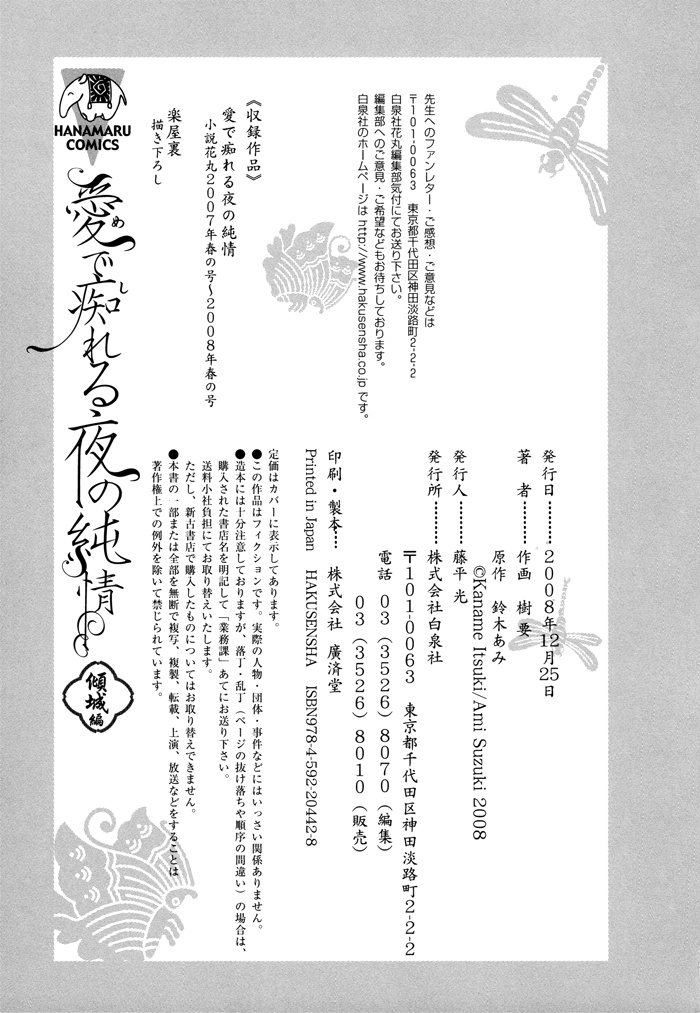 先生へのファンレター・ご感想・ご意見などは
〒101-0063 東京都千代田区神田淡路町2-2-2
白泉社花丸編集部気付にてお送り下さい。
編集部へのご意見・ご希望などもお待ちしております。
白泉社のホームページは http://www.hakusensha.co.jp です。
《収録作品》
愛で痴れる夜の純情
小説花丸2007年春の号~2008年春の号
楽屋裏
描き下ろし
HANAMARU
COMICS
愛で痴れる夜の純情
め
し
傾城編
発行日………2008年12月25日
著 者………作画 樹 要
原作 鈴木あみ
©Kaname Itsuki/Ami Suzuki 2008
発行人………藤平 光
発行所………株式会社白泉社
〒101-0063 東京都千代田区神田淡路町2-2-2
電話 03(3526)8070(編集)
03(3526)8010(販売)
印刷・製本… 株式会社 廣済堂
Printed in Japan HAKUSENSHA ISBN978-4-592-20442-8
定価はカバーに表示してあります。
●この作品はフィクションです。実際の人物・団体・事件などにはいっさい関係ありません。
●造本には十分注意しておりますが、落丁・乱丁(ページの抜け落ちや順序の間違い)の場合は、
購入された書店名を明記して「業務課」あてにお送り下さい。
送料小社負担にてお取り替えいたします。
ただし、新古書店で購入したものについてはお取り替えできません。
●本書の一部または全部を無断で複写、複製、転載、上演、放送などをすることは
著作権上での例外を除いて禁じられています。